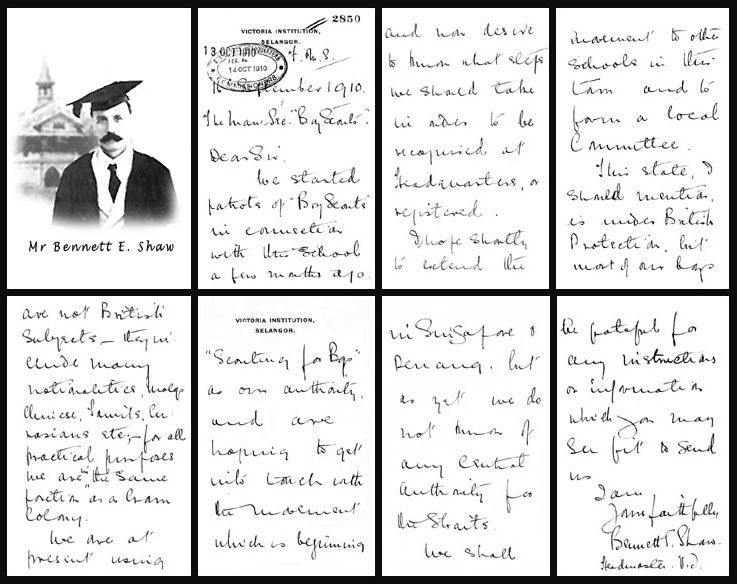 Mr Bennett E. Shaw
2850
VICTORIA INSTITUTION,
SELANGOR.
F. M. S.
13 OCT 1910
14 OCT 1910
September 1910.
"Boy Scouts".
Dear Sir.
We started
patrols of "Boy Scouts"
in connection
with this School
a few months ago.
and now desire
to know what steps
we should take
in order to be
recognised at
Headquarters, or
registered.
I hope shortly
to extend the
movement to other
schools in this
town and to
form a local
Committee.
This state, I
should mention,
is under British
Protection, but
most of our boys
are not British
Subjects – they in-
clude many
nationalities, Malays
Chinese, Tamils, Eu-
rasians etc; – for all
practical purposes
we are in "the same
position" as a Crown
Colony.
We are at
present using
VICTORIA INSTITUTION,
SELANGOR.
"Scouting for Boys"
as our authority,
and are
hoping to get
into touch with
the movement
which is beginning
in Singapore &
Penang. but
as yet we do
not know of
any Central
Authority for
the Straits.
We shall
be grateful for
any instructions
or information
which you may
see fit to send
us
I am
Yours faithfully
Bennett E. Shaw.
Headmaster. V.I.